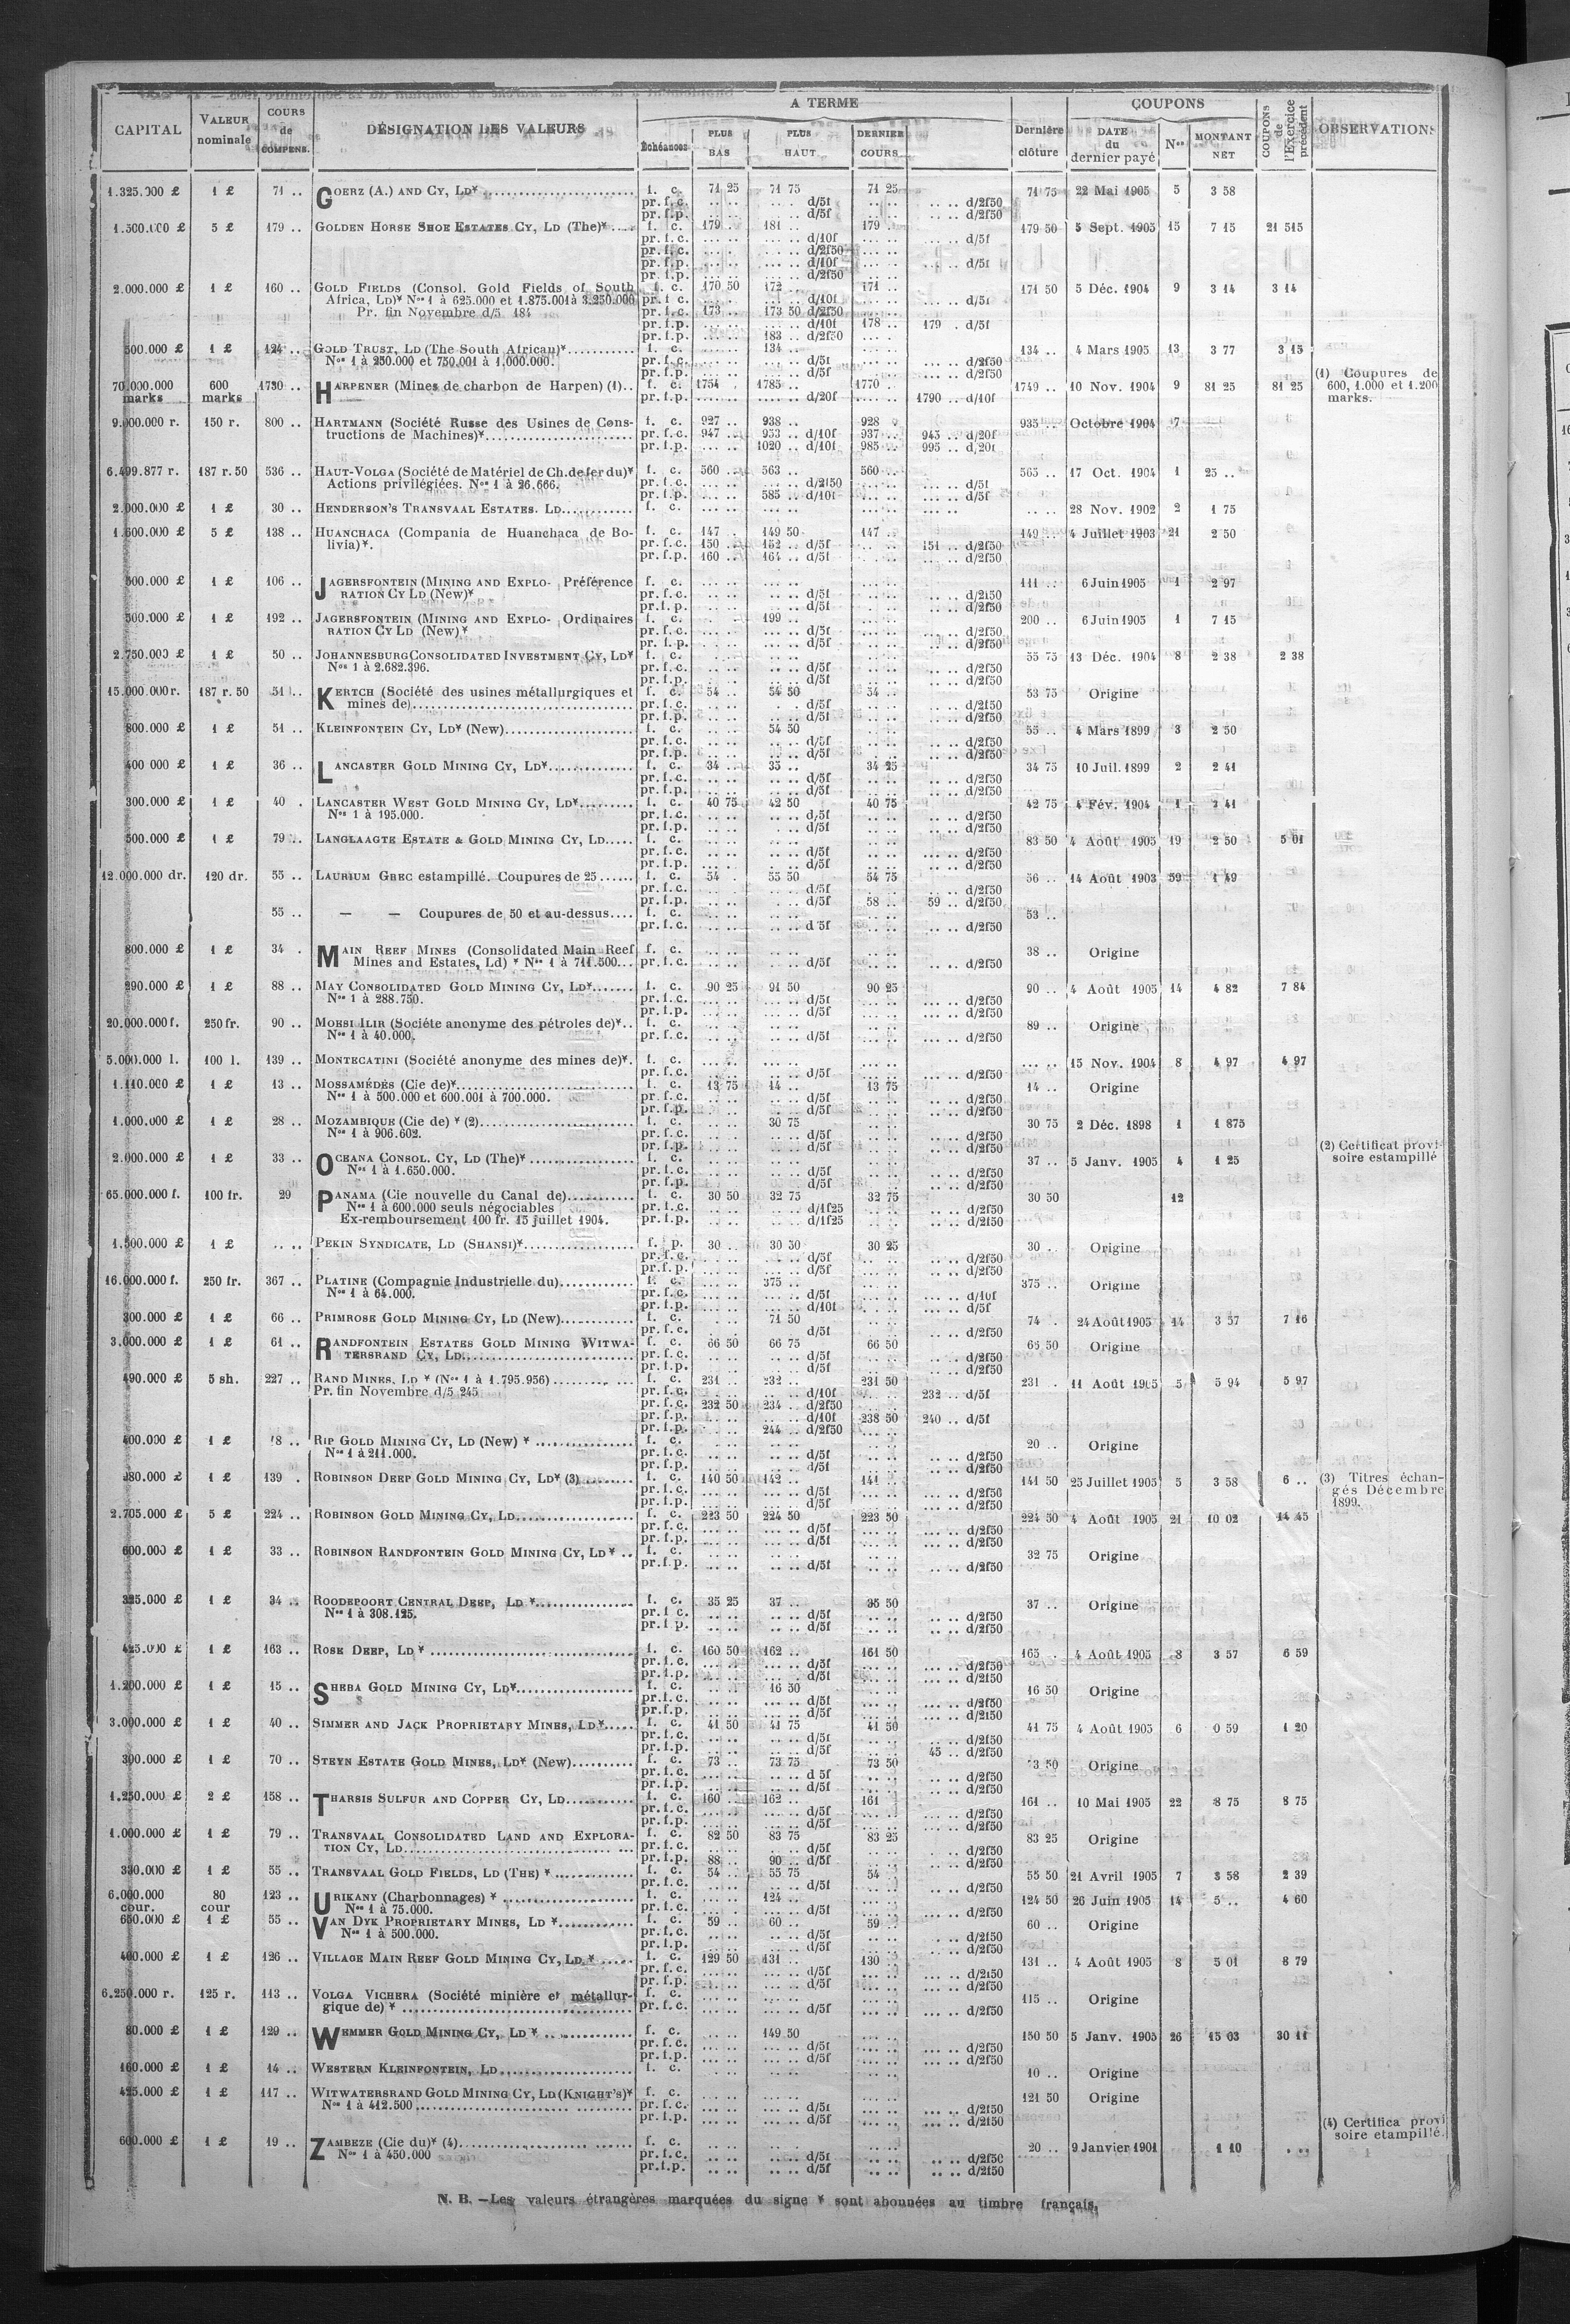 CAPITAL VALEUR nominale COURS de COMPENS. DÉSIGNATION DES VALEURS A TERME Échéances PLUS BAS PLUS HAUT DERNIER COURS Dernière clôture COUPONS DATE du dernier payé Nos MONTANT NET COUPONS de l'Exercice précédent OBSERVATIONS
1.325.000 £ 1 £ 71 .. GOERZ (A.) AND CY, LD* f. c. 71 25 71 75 71 25 71 75 22 Mai 1905 5 3 58
pr. f.c. .. .. .... d/5f .. .. .. .. d/2f50
pr. f.p. .. .. .... d/5f .. .. .. .. d/2f50
1.500.000 £ 5 £ 179 .. GOLDEN HORSE SHOE ESTATES CY, LD (The)* f. c. 179 .. 181 .. 179 .. 179 50 5 Sept. 1905 15 7 15 21 515
pr. f.c. d/10f d/5f
pr. f.c. d/2f50
pr. f.p. d/10f d/5f
pr. f.p. d/2f50
2.000.000 £ 1 £ 160 .. GOLD FIELDS (Consol. Gold Fields of South f. c. 170 50 172 .. 171 .. 171 50 5 Déc. 1904 9 3 14 3 14
Africa, LD)* Nos 1 à 625.000 et 1.875.001 à 3.250.000 pr. f.c. d/10f d/5f
Pr. fin Novembre d/5 184 pr. f.c. 173 .. 173 50 d/2f50
pr. f.p. d/10f 178 .. 179 . d/5f
pr. f.p. 183 .. d/2f50
500.000 £ 1 £ 124 .. GOLD TRUST, LD (The South African)* f. c. 134 .. 134 .. 4 Mars 1905 13 3 77 3 15
Nos 1 à 250.000 et 750.001 à 1,000.000. pr. f.c. d/5f d/2f50
pr. f.p. d/5f d/2f50
70.000.000 marks 600 marks 1730 .. HARPENER (Mines de charbon de Harpen) (1).. f. c. 1754 1785 .. 1770 .. 1749 .. 10 Nov. 1904 9 81 25 81 25 (1) Coupures de 600, 1.000 et 1.200 marks.
pr. f.p. d/20f 1790 .. d/10f
9.000.000 r. 150 r. 800 .. HARTMANN (Société Russe des Usines de Cons- f. c. 927 .. 938 .. 928 935 .. Octobre 1904 7
tructions de Machines)* pr. f.c. 947 .. 953 .. d/10f 937 .. 945 .. d/20f
pr. f.p. 1020 .. d/10f 985 .. 995 .. d,20f
6.499.877 r. 187 r. 50 536 .. HAUT-VOLGA (Société de Matériel de Ch. de fer du)* f. c. 560 .. 563 .. 560 .. 565 .. 17 Oct. 1904 1 25 ..
Actions privilégiées. Nos 1 à 26.666. pr. f.c. d/2f50 d/5f
pr. f.p. 585 .. d/10f d/5f
2.000.000 £ 1 £ 30 .. HENDERSON'S TRANSVAAL ESTATES. LD f. c. 28 Nov. 1902 2 1 75
1.600.000 £ 5 £ 138 .. HUANCHACA (Compania de Huanchaca de Bo- f. c. 147 . 149 50 147 .. 149 .. 4 Juillet 1903 21 2 50
livia)*. pr. f.c. 150 .. 152 .. d/5f 151 .. d/2f50
pr. f.p. 160 .. 164 .. d/5f d/2f50
500.000 £ 1 £ 106 .. JAGERSFONTEIN (MINING AND EXPLO- Préférence f. c. 111 .. 6 Juin 1905 1 2 97
RATION CY LD (New)* pr. f.c. d/5f d/2f50
pr. f.p. d/5f d/2f50
500.000 £ 1 £ 192 .. JAGERSFONTEIN (MINING AND EXPLO- Ordinaires f. c. 199 .. 200 .. 6 Juin 1905 1 7 15
RATION CY LD (New)* pr. f.c. d/5f d/2f50
pr. f.p. d/5f d/2f50
2.750.000 £ 1 £ 50 .. JOHANNESBURG CONSOLIDATED INVESTMENT CY, LD* f. c. 55 75 13 Déc. 1904 8 2 38 2 38
Nos 1 à 2.682.396. pr. f.c. d/5f d/2f50
pr. f.p. d/5f d/2f50
15.000.000 r. 187 r. 50 51 .. KERTCH (Société des usines métallurgiques et f. c. 54 .. 54 50 54 .. 53 75 Origine
mines de) pr. f.c. d/5f d/2f50
pr. f.p. d/5f d/2f50
800.000 £ 1 £ 51 .. KLEINFONTEIN CY, LD* (New) f. c. 54 50 55 .. 4 Mars 1899 3 2 50
pr. f.c. d/5f d/2f50
pr. f.p. d/5f d/2f50
400 000 £ 1 £ 36 .. LANCASTER GOLD MINING CY, LD* f. c. 34 .. 35 .. 34 25 34 75 10 Juil. 1899 2 2 41
pr. f.c. d/5f d/2f50
pr. f.p. d/5f d/2f50
300.000 £ 1 £ 40 . LANCASTER WEST GOLD MINING CY, LD* f. c. 40 75 42 50 40 75 42 75 4 Fév. 1904 1 2 41
Nos 1 à 195.000. pr. f.c. d/5f d/2f50
pr. f.p. d/5f d/2f50
500.000 £ 1 £ 79 .. LANGLAAGTE ESTATE & GOLD MINING CY, LD f. c. 83 50 4 Août 1905 19 2 50 5 01
pr. f.c. d/5f d/2f50
pr. f.p. d/5f d/2f50
12.000.000 dr. 120 dr. 55 .. LAURIUM GREC estampillé. Coupures de 25 f. c. 54 . 55 50 54 75 56 .. 14 Août 1903 59 1 49
pr. f.c. d/5f d/2f50
pr. f.p. d/5f 58 .. 59 .. d/2f50
55 .. — — Coupures de 50 et au-dessus f. c. 53 ..
pr. f.c. d 5f d/2f50
800.000 £ 1 £ 34 . MAIN REEF MINES (Consolidated Main Reef f. c. 38 .. Origine
Mines and Estates, Ld) * Nos 1 à 711.500 pr. f.c. d/5f d/2f50
290.000 £ 1 £ 88 .. MAY CONSOLIDATED GOLD MINING CY, LD* f. c. 90 25 91 50 90 25 90 .. 4 Août 1905 14 4 82 7 84
Nos 1 à 288.750. pr. f.c. d/5f d/2f50
pr. f.p. d/5f d/2f50
20.000.000 f. 250 fr. 90 .. MORSI ILIR (Sociéte anonyme des pétroles de)*.. f. c. 89 .. Origine
Nos 1 à 40.000. pr. f.c. d/5f d/2f50
5.000.000 l. 100 l. 139 .. MONTECATINI (Société anonyme des mines de)*. f. c. 15 Nov. 1904 8 4 97 4 97
pr. f.c. d/5f d/2f50
1.110.000 £ 1 £ 13 .. MOSSAMÉDÈS (Cie de)* f. c. 13 75 14 .. 13 75 14 .. Origine
Nos 1 à 500.000 et 600.001 à 700.000. pr. f.c. d/5f d/2f50
pr. f.p. d/5f d/2f50
1.000.000 £ 1 £ 28 .. MOZAMBIQUE (Cie de) * (2) f. c. 30 75 30 75 2 Déc. 1898 1 1 875
Nos 1 à 906.602. pr. f.c. d/5f d/2f50
pr. f.p. d/5f d/2f50 (2) Certificat provi-
2.000.000 £ 1 £ 33 .. OCEANA CONSOL. CY, LD (The)* f. c. 37 .. 5 Janv. 1905 4 1 25 soire estampillé
Nos 1 à 1.650.000. pr. f.c. d/5f d/2f50
pr. f.p. d/5f d/2f50
65.000.000 f. 100 fr. 29 PANAMA (Cie nouvelle du Canal de) f. c. 30 50 32 75 32 75 30 50 12
Nos 1 à 600.000 seuls négociables pr. f.c. d/1f25 d/2f50
Ex-remboursement 100 fr. 15 juillet 1904. pr. f.p. d/1f25 d/2f50
1.500.000 £ 1 £ .. .. PEKIN SYNDICATE, LD (SHANSI)* f. p. 30 .. 30 50 30 25 30 . Origine
pr. f.c. d/5f d/2f50
pr. f.p. d/5f d/2f50
16.000.000 f. 250 fr. 367 .. PLATINE (Compagnie Industrielle du) f. c. 375 .. 375 .. Origine
Nos 1 à 64.000. pr. f.c. d/5f d/10f
pr. f.p. d/10f d/5f
300.000 £ 1 £ 66 .. PRIMROSE GOLD MINING CY, LD (New) f. c. 71 50 74 . 24 Août 1905 14 3 57 7 16
pr. f.c. d/5f d/2f50
3.000.000 £ 1 £ 61 .. RANDFONTEIN ESTATES GOLD MINING WITWA- f. c. 66 50 66 75 66 50 65 50 Origine
TERSRAND CY, LD pr. f.c. d/5f d/2f50
pr. f.p. d/5f d/2f50
490.000 £ 5 sh. 227 .. RAND MINES, LD * (Nos 1 à 1.795.956) f. c. 231 .. 232 .. 231 50 231 . 11 Août 1905 5 5 94 5 97
Pr. fin Novembre d/5 245 pr. f.c. d/10f 232 .. d/5f
pr. f.c. 232 50 234 .. d/2f50
pr. f.p. d/10f 238 50 240 .. d/5f
pr. f.p. 244 .. d/2f50
400.000 £ 1 £ 18 .. RIP GOLD MINING CY, LD (New) * f. c. 20 .. Origine
Nos 1 à 211.000. pr. f.c. d/5f d/2f50
pr. f.p. d/5f d/2f50
980.000 £ 1 £ 139 . ROBINSON DEEP GOLD MINING CY, LD* (3) f. c. 140 50 142 .. 141 .. 141 50 25 Juillet 1905 5 3 58 6 .. (3) Titres échan-
pr. f.c. d/5f d/2f50 gés Décembre
pr. f.p. d/5f d/2f50 1899.
2.705.000 £ 5 £ 224 .. ROBINSON GOLD MINING CY, LD f. c. 223 50 224 50 223 50 224 50 4 Août 1905 21 10 02 14 45
pr. f.c. d/5f d/2f50
pr. f.p. d/5f d/2f50
600.000 £ 1 £ 33 .. ROBINSON RANDFONTEIN GOLD MINING CY, LD * .. f. c. 32 75 Origine
pr. f.p. d/5f d/2f50
325.000 £ 1 £ 34 .. ROODEPOORT CENTRAL DEEP, LD * f. c. 35 25 37 .. 35 50 37 .. Origine
Nos 1 à 308.125. pr. f c. d/5f d/2f50
pr. f p. d/5f d/2f50
425.000 £ 1 £ 163 .. ROSE DEEP, LD * f. c. 160 50 162 .. 161 50 165 . 4 Août 1905 8 3 57 6 59
pr. f.c. d/5f d/2f50
pr. f.p. d/5f d/2f50
1.200.000 £ 1 £ 15 .. SHEBA GOLD MINING CY, LD* f. c. 16 50 16 50 Origine
pr. f.c. d/5f d/2f50
pr. f.p. d/5f d/2f50
3.000.000 £ 1 £ 40 .. SIMMER AND JACK PROPRIETARY MINES, LD* f. c. 41 50 41 75 41 50 41 75 4 Août 1905 6 0 59 1 20
pr. f.c. d/5f d/2f50
pr. f.p. d/5f 45 .. d/2f50
300.000 £ 1 £ 70 .. STEYN ESTATE GOLD MINES, LD* (New) f. c. 73 .. 73 75 73 50 73 50 Origine
pr. f.c. d 5f d/2f50
pr. f.p. d/5f d/2f50
1.250.000 £ 2 £ 158 .. THARSIS SULFUR AND COPPER CY, LD f. c. 160 .. 162 .. 161 161 .. 10 Mai 1905 22 8 75 8 75
pr. f.c. d/5f d/2f50
pr. f.p. d/5f d/2f50
1.000.000 £ 1 £ 79 .. TRANSVAAL CONSOLIDATED LAND AND EXPLORA- f. c. 82 50 83 75 83 25 83 25 Origine
TION CY, LD pr. f.c. d/5f d/2f50
pr. f.p. 88 .. 90 .. d/5f d/2f50
330.000 £ 1 £ 55 .. TRANSVAAL GOLD FIELDS, LD (THE) * f. c. 54 .. 55 75 54 .. 55 50 21 Avril 1905 7 3 58 2 39
pr. f.c. d/5f d/2f50
6.000.000 cour. 80 cour 123 .. URIKANY (Charbonnages) * f. c. 124 .. 124 50 26 Juin 1905 14 5 .. 4 60
Nos 1 à 75.000. pr. f.c. d/5f d/2f50
650.000 £ 1 £ 55 .. VAN DYK PROPRIETARY MINES, LD * f. c. 59 .. 60 .. 59 .. 60 .. Origine
Nos 1 à 500.000. pr. f.c. d/5f d/2f50
pr. f.p. d/5f d/2f50
400.000 £ 1 £ 126 .. VILLAGE MAIN REEF GOLD MINING CY, LD * f. c. 129 50 131 .. 130 131 .. 4 Août 1905 8 5 01 8 79
pr. f.c. d/5f d/2f50
pr. f.p. d/5f d/2f50
6.250.000 r. 125 r. 113 .. VOLGA VICHERA (Société minière et métallur- f. c. 115 .. Origine
gique de) * pr. f.c. d/5f d/2f50
80.000 £ 1 £ 129 .. WEMMER GOLD MINING CY, LD * f. c. 149 50 150 50 5 Janv. 1905 26 15 03 30 11
pr. f.c. d/5f d/2f50
pr. f.p. d/5f d/2f50
160.000 £ 1 £ 14 .. WESTERN KLEINFONTEIN, LD f. c. 10 .. Origine
425.000 £ 1 £ 117 .. WITWATERSRAND GOLD MINING CY, LD (KNIGHT'S)* f. c. 121 50 Origine
Nos 1 à 412.500 pr. f.c. d/5f d/2f50
pr. f.p. d/5f d/2f50 (4) Certifica provi
soire etampillé.
600.000 £ 1 £ 19 .. ZAMBEZE (Cie du)* (4) f. c. 20 .. 9 Janvier 1901 1 10
Nos 1 à 450.000 pr. f.c. d/5f d/2f50
pr. f.p. d/5f d/2f50
N. B. —Les valeurs étrangères marquées du signe * sont abonnées au timbre français.